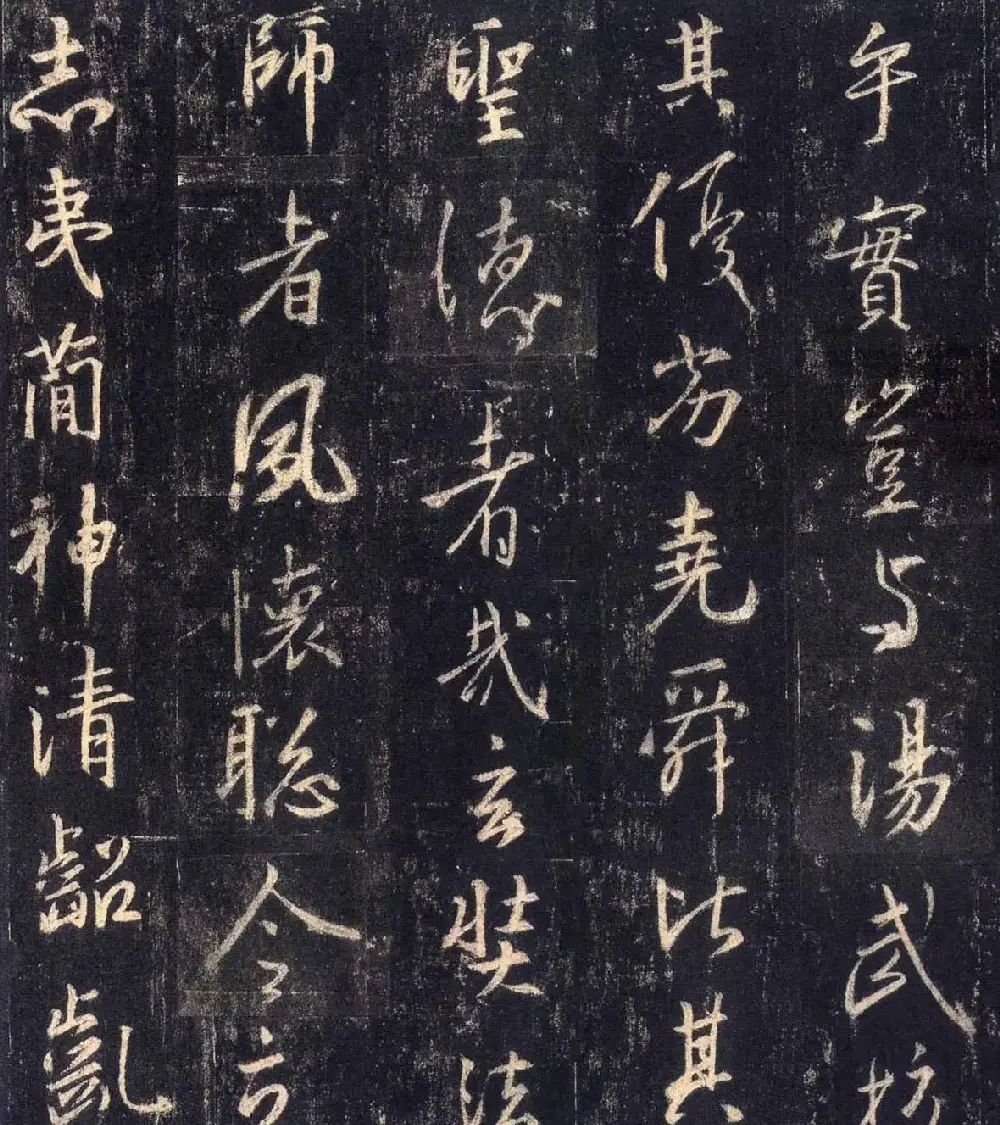 乎實豈与湯武挍
其優劣堯舜比其
聖德者哉玄奘法
師者夙懷聡令立
志夷蕳神清齠齓